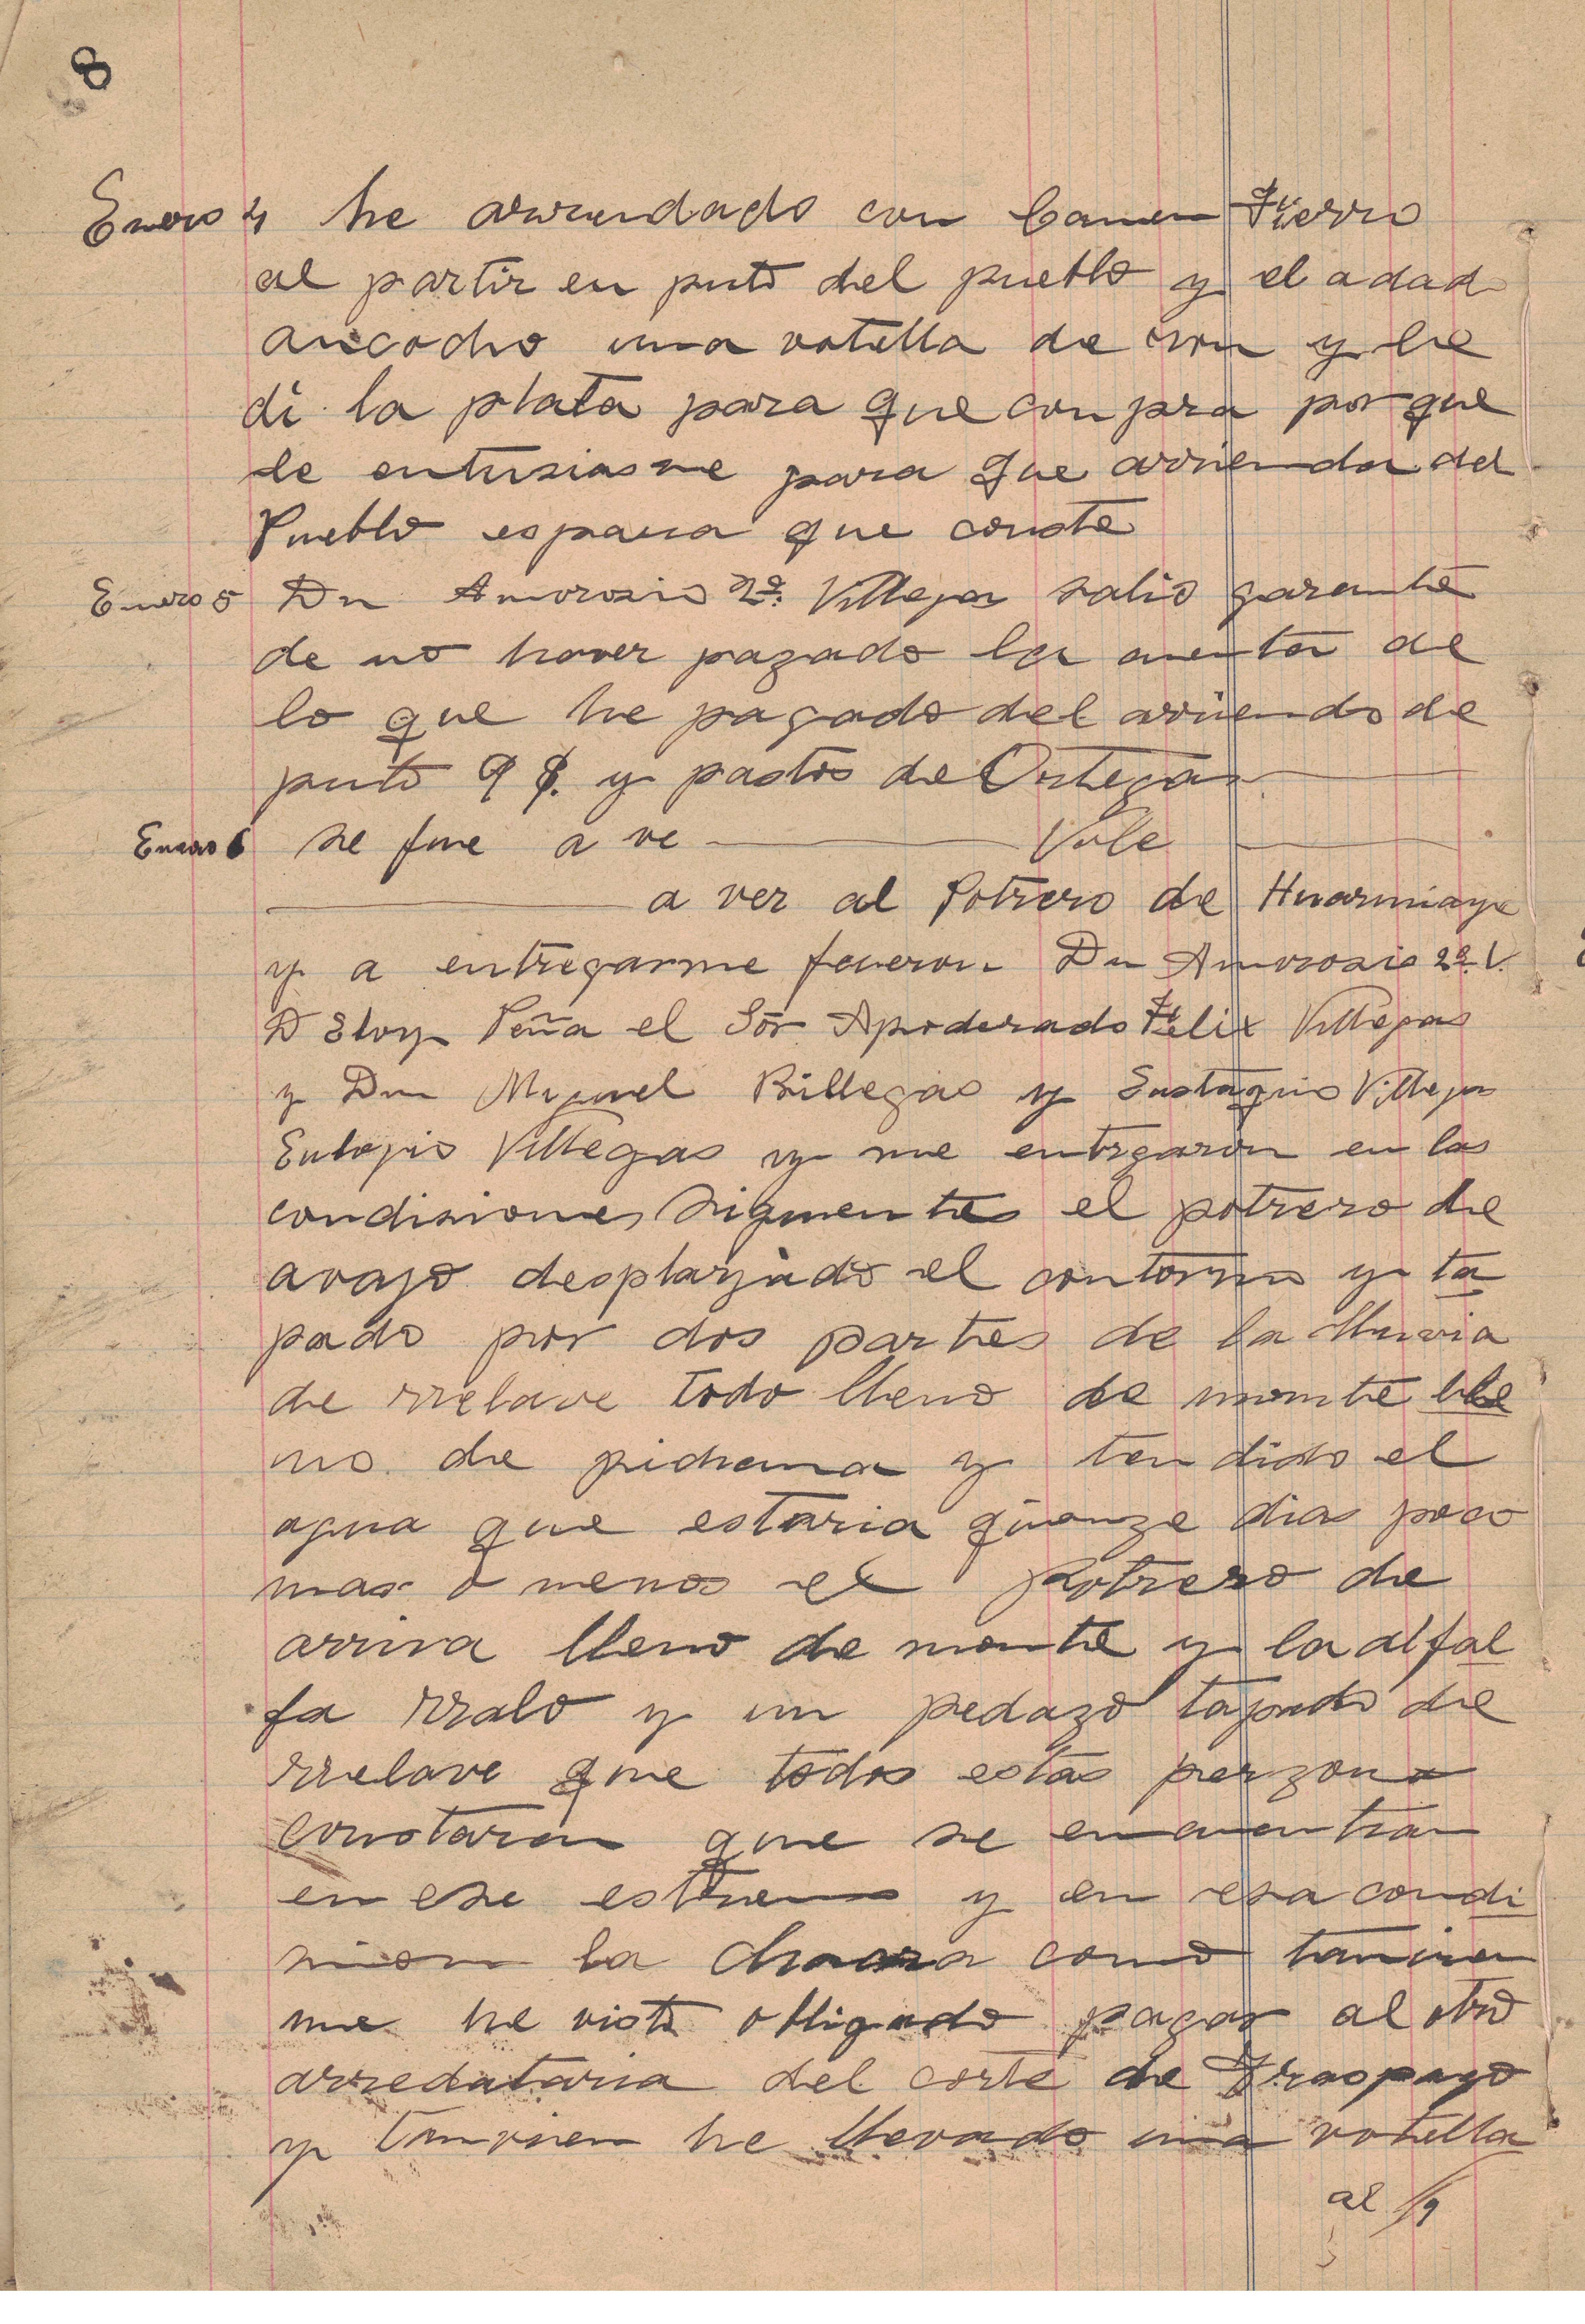 8
Enero 4 he arrendado con Camen Fierro
al partir en puto del pueblo y el a dado
ancocho una votella de rron y le
di la plata para que conpra por que
le entusiasme para que arrienda del
Pueblo es para que conste
Enero 5 Dn Amorosio 2º Villegas salio garante
de no haver pagado la cuenta de
lo que he pagado del arriendo de
puto 9 $. y pastos de Ortegas
Enero 6 se fue a ve Vale
a ver al Potrero de Huarmiaya
y a entregarme fueron Dn Amorosio 2º V.
D Eloy Peña el Sor Apoderado Felix Villegas
y Dn Miguel Billegas y Eustaquio Villegas
Eulogio Villegas y me entrgaron en las
condisiones siguentes el potrero de
avajo desplayado el contorno y ta
pado por dos partes de la lluvia
de rrelave todo lleno de monte lle
no de pichana y tendido el
agua que estaria quinze dias poco
mas o menos el Potrero de
arriva lleno de monte y la alfal
fa rralo y un pedazo tapado de
rrelave que todos estas perzona
constaran que se encuentran
en ese estremo y en esa condi
sion la chacra como tanvien
me he visto obligado pagar al otro
arredataria del corte de Traspayo
y tanvien he llevado una votella
al /9